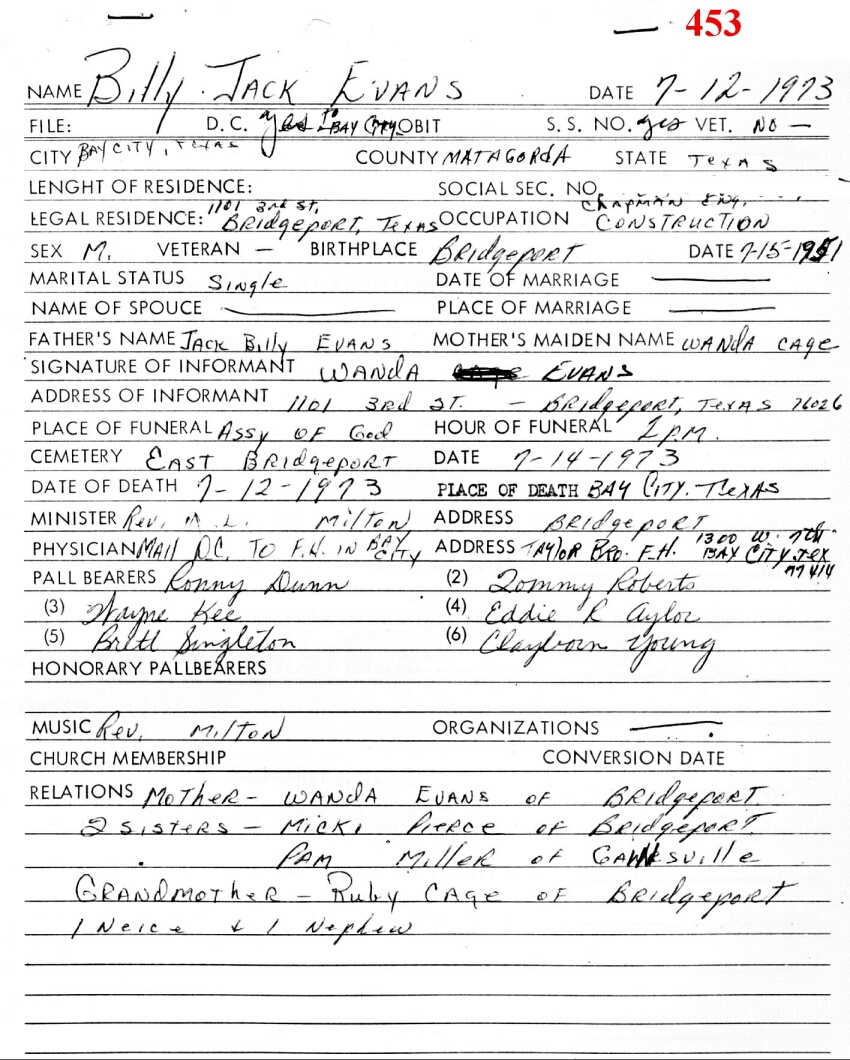 453
NAME Billy Jack Evans DATE 7-12-1973
FILE: D.C. yes to BAY CITY OBIT S.S. NO. yes VET. NO —
CITY BAY CITY, TEXAS COUNTY MATAGORDA STATE TEXAS
LENGHT OF RESIDENCE: SOCIAL SEC. NO.
LEGAL RESIDENCE: 1101 3rd St, Bridgeport, Texas OCCUPATION Chapman Eng. Construction
SEX M. VETERAN — BIRTHPLACE Bridgeport DATE 7-15-1951
MARITAL STATUS Single DATE OF MARRIAGE —
NAME OF SPOUCE — PLACE OF MARRIAGE —
FATHER'S NAME Jack Billy Evans MOTHER'S MAIDEN NAME Wanda Cage
SIGNATURE OF INFORMANT Wanda Evans
ADDRESS OF INFORMANT 1101 3rd St. — Bridgeport, Texas 76026
PLACE OF FUNERAL Assy of God HOUR OF FUNERAL 2 P.M.
CEMETERY East Bridgeport DATE 7-14-1973
DATE OF DEATH 7-12-1973 PLACE OF DEATH BAY CITY, TEXAS
MINISTER Rev. M. L. Milton ADDRESS Bridgeport
PHYSICIAN MAIL D.C. TO F.H. IN BAY CITY ADDRESS TAYLOR BRO. F.H. 1300 W. 7th BAY CITY, TEX 77414
PALL BEARERS Ronny Dunn (2) Tommy Roberts
(3) Wayne Kee (4) Eddie R Aylor
(5) Brett Singleton (6) Clayborn Young
HONORARY PALLBEARERS
MUSIC Rev. Milton ORGANIZATIONS —
CHURCH MEMBERSHIP CONVERSION DATE
RELATIONS Mother — Wanda Evans of Bridgeport
2 Sisters — Micki Pierce of Bridgeport
Pam Miller of Gainesville
Grandmother — Ruby Cage of Bridgeport
1 Neice & 1 Nephew